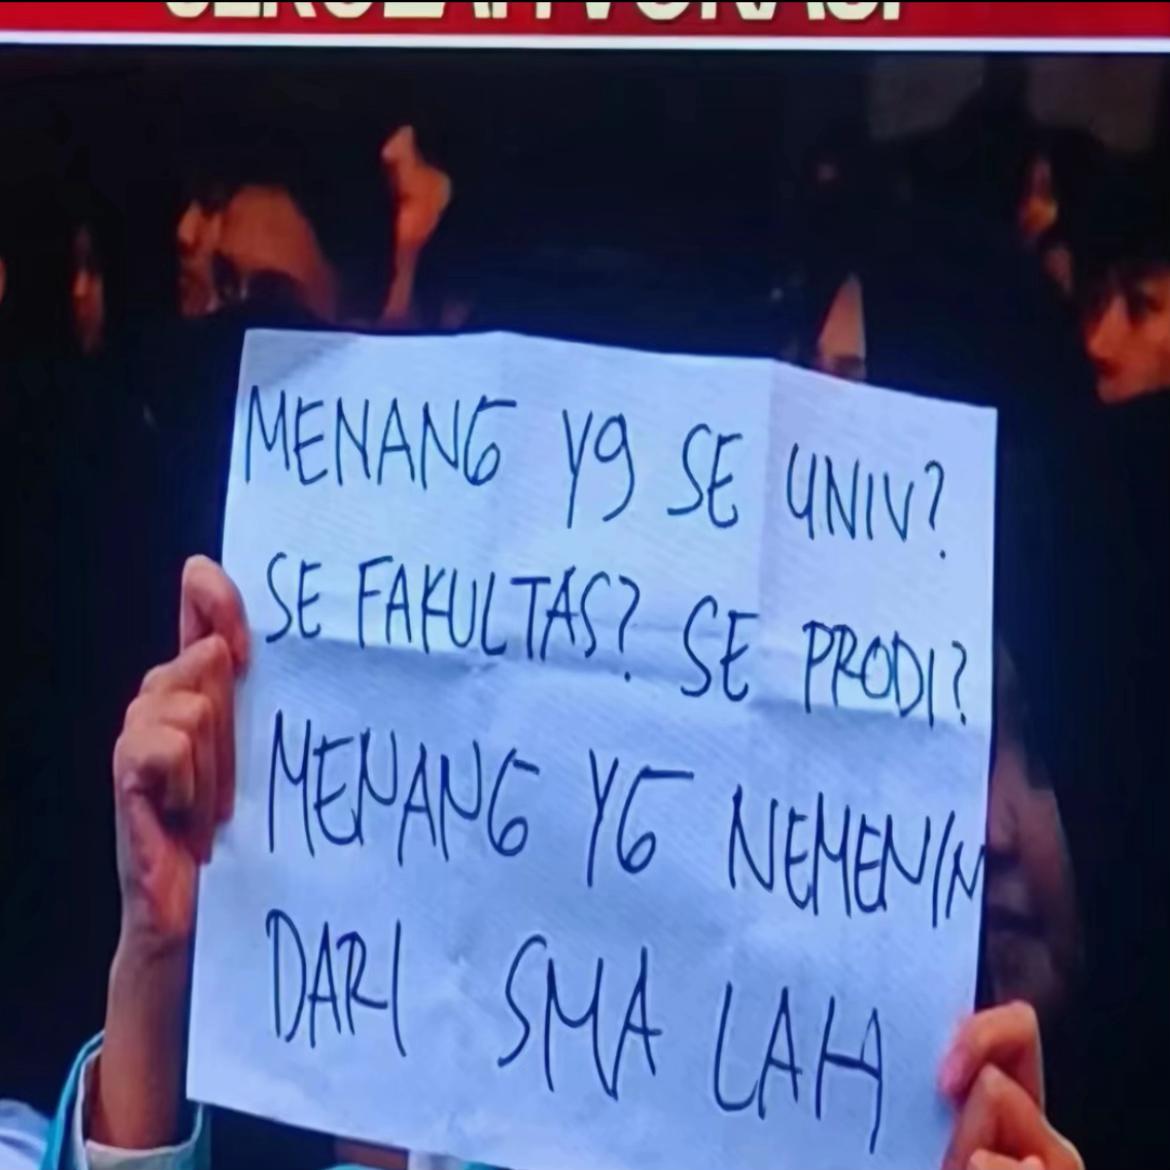 SEKOLAH VOKASI
MENANG Yg SE UNIV?
SE FAKULTAS? SE PRODI?
MENANG YG NEMENIN
DARI SMA LAH